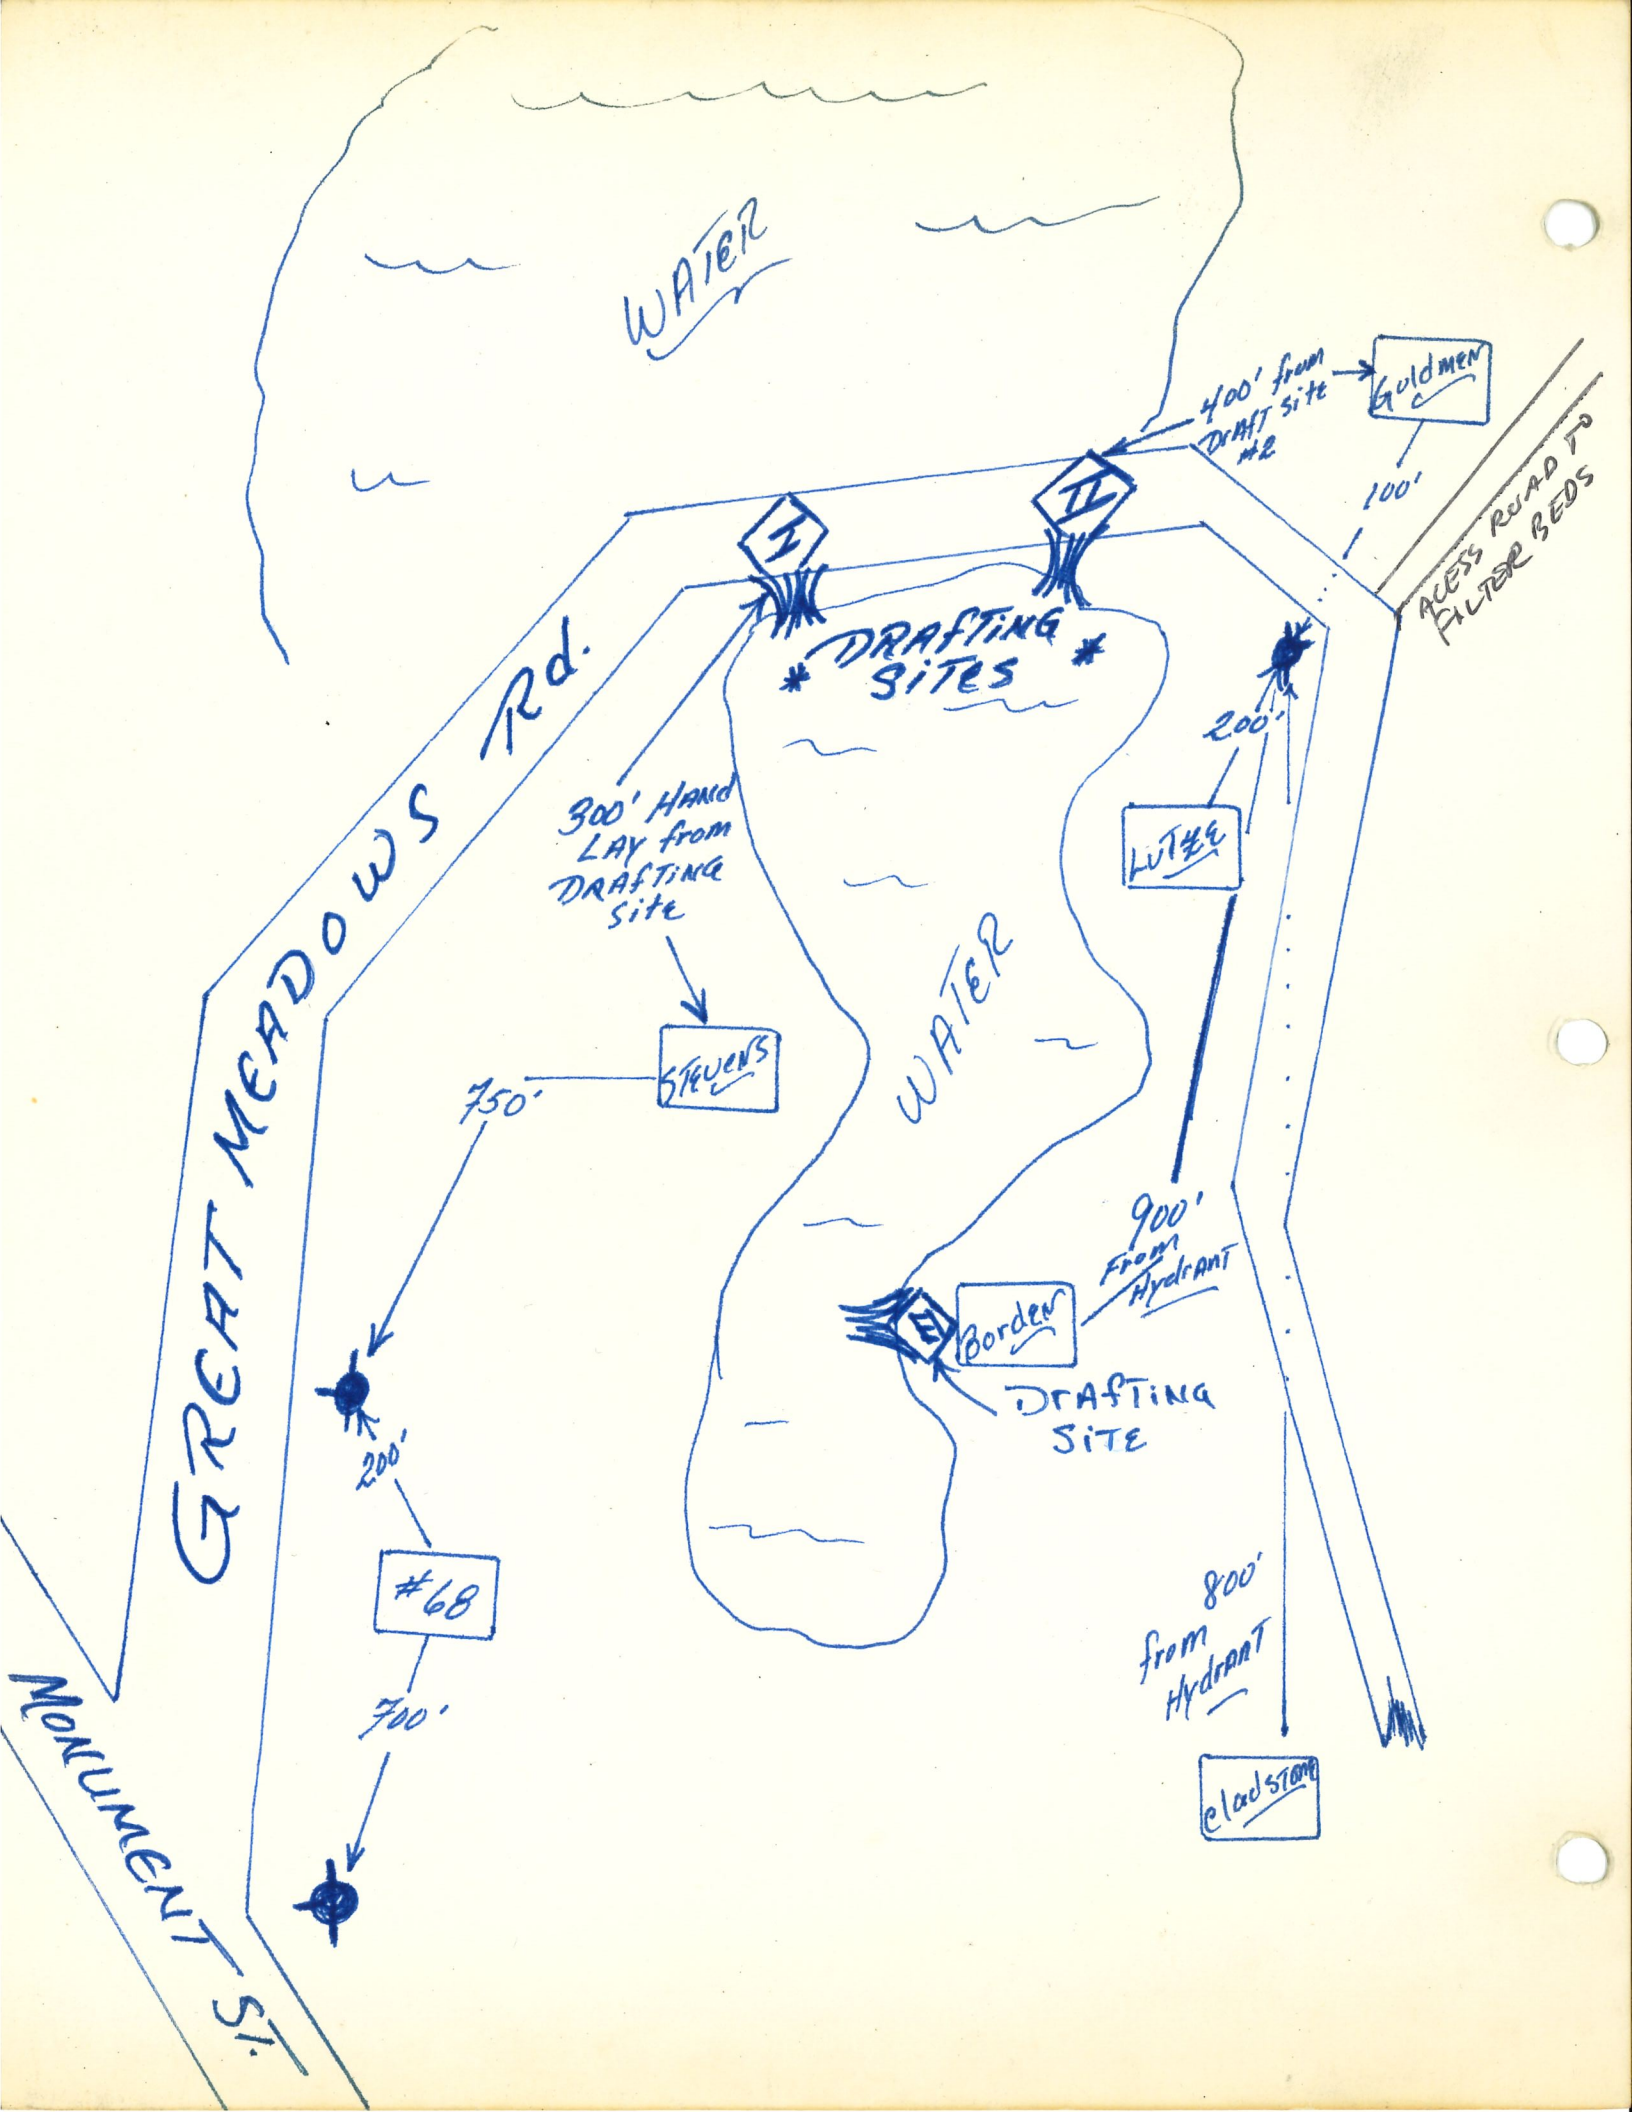 WATER
400' from
Draft Site
#2
Guldmen
100'
ACESS ROAD TO
FILTER BEDS
I
II
* DRAFTING *
SITES
GREAT MEADOWS Rd.
300' HAND
LAY from
DRAFTING
site
200'
LUTZE
WATER
STEVENS
750'
900'
From
HydrANT
III
Borden
DrAFTING
SITE
200'
#68
700'
800'
from
HydrANT
MONUMENT St.